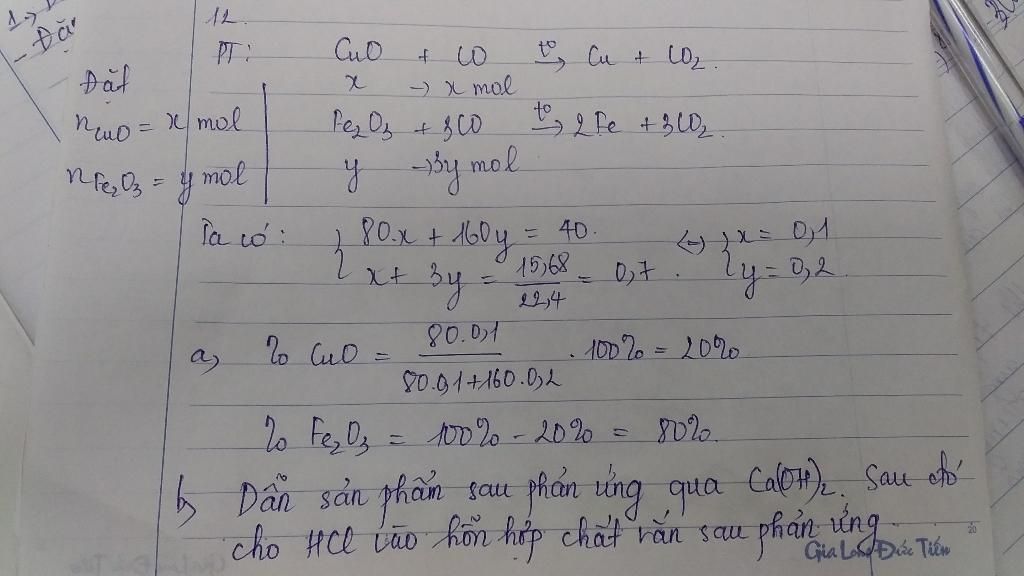 12.
PT: CuO + CO t°→ Cu + CO2.
x → x mol
Đặt
nCuO = x mol
Fe2O3 + 3CO t°→ 2Fe + 3CO2.
nFe2O3 = y mol
y → 3y mol
Ta có: { 80.x + 160y = 40. ↔ { x = 0,1
x + 3y = 15,68/22,4 = 0,7. y = 0,2
a, % CuO = 80.0,1/80.0,1+160.0,2 . 100% = 20%
% Fe2O3 = 100% - 20% = 80%.
b, Dẫn sản phẩm sau phản ứng qua Ca(OH)2. Sau đó
cho HCl vào hỗn hợp chất rắn sau phản ứng.
Gia Long Đức Tiến